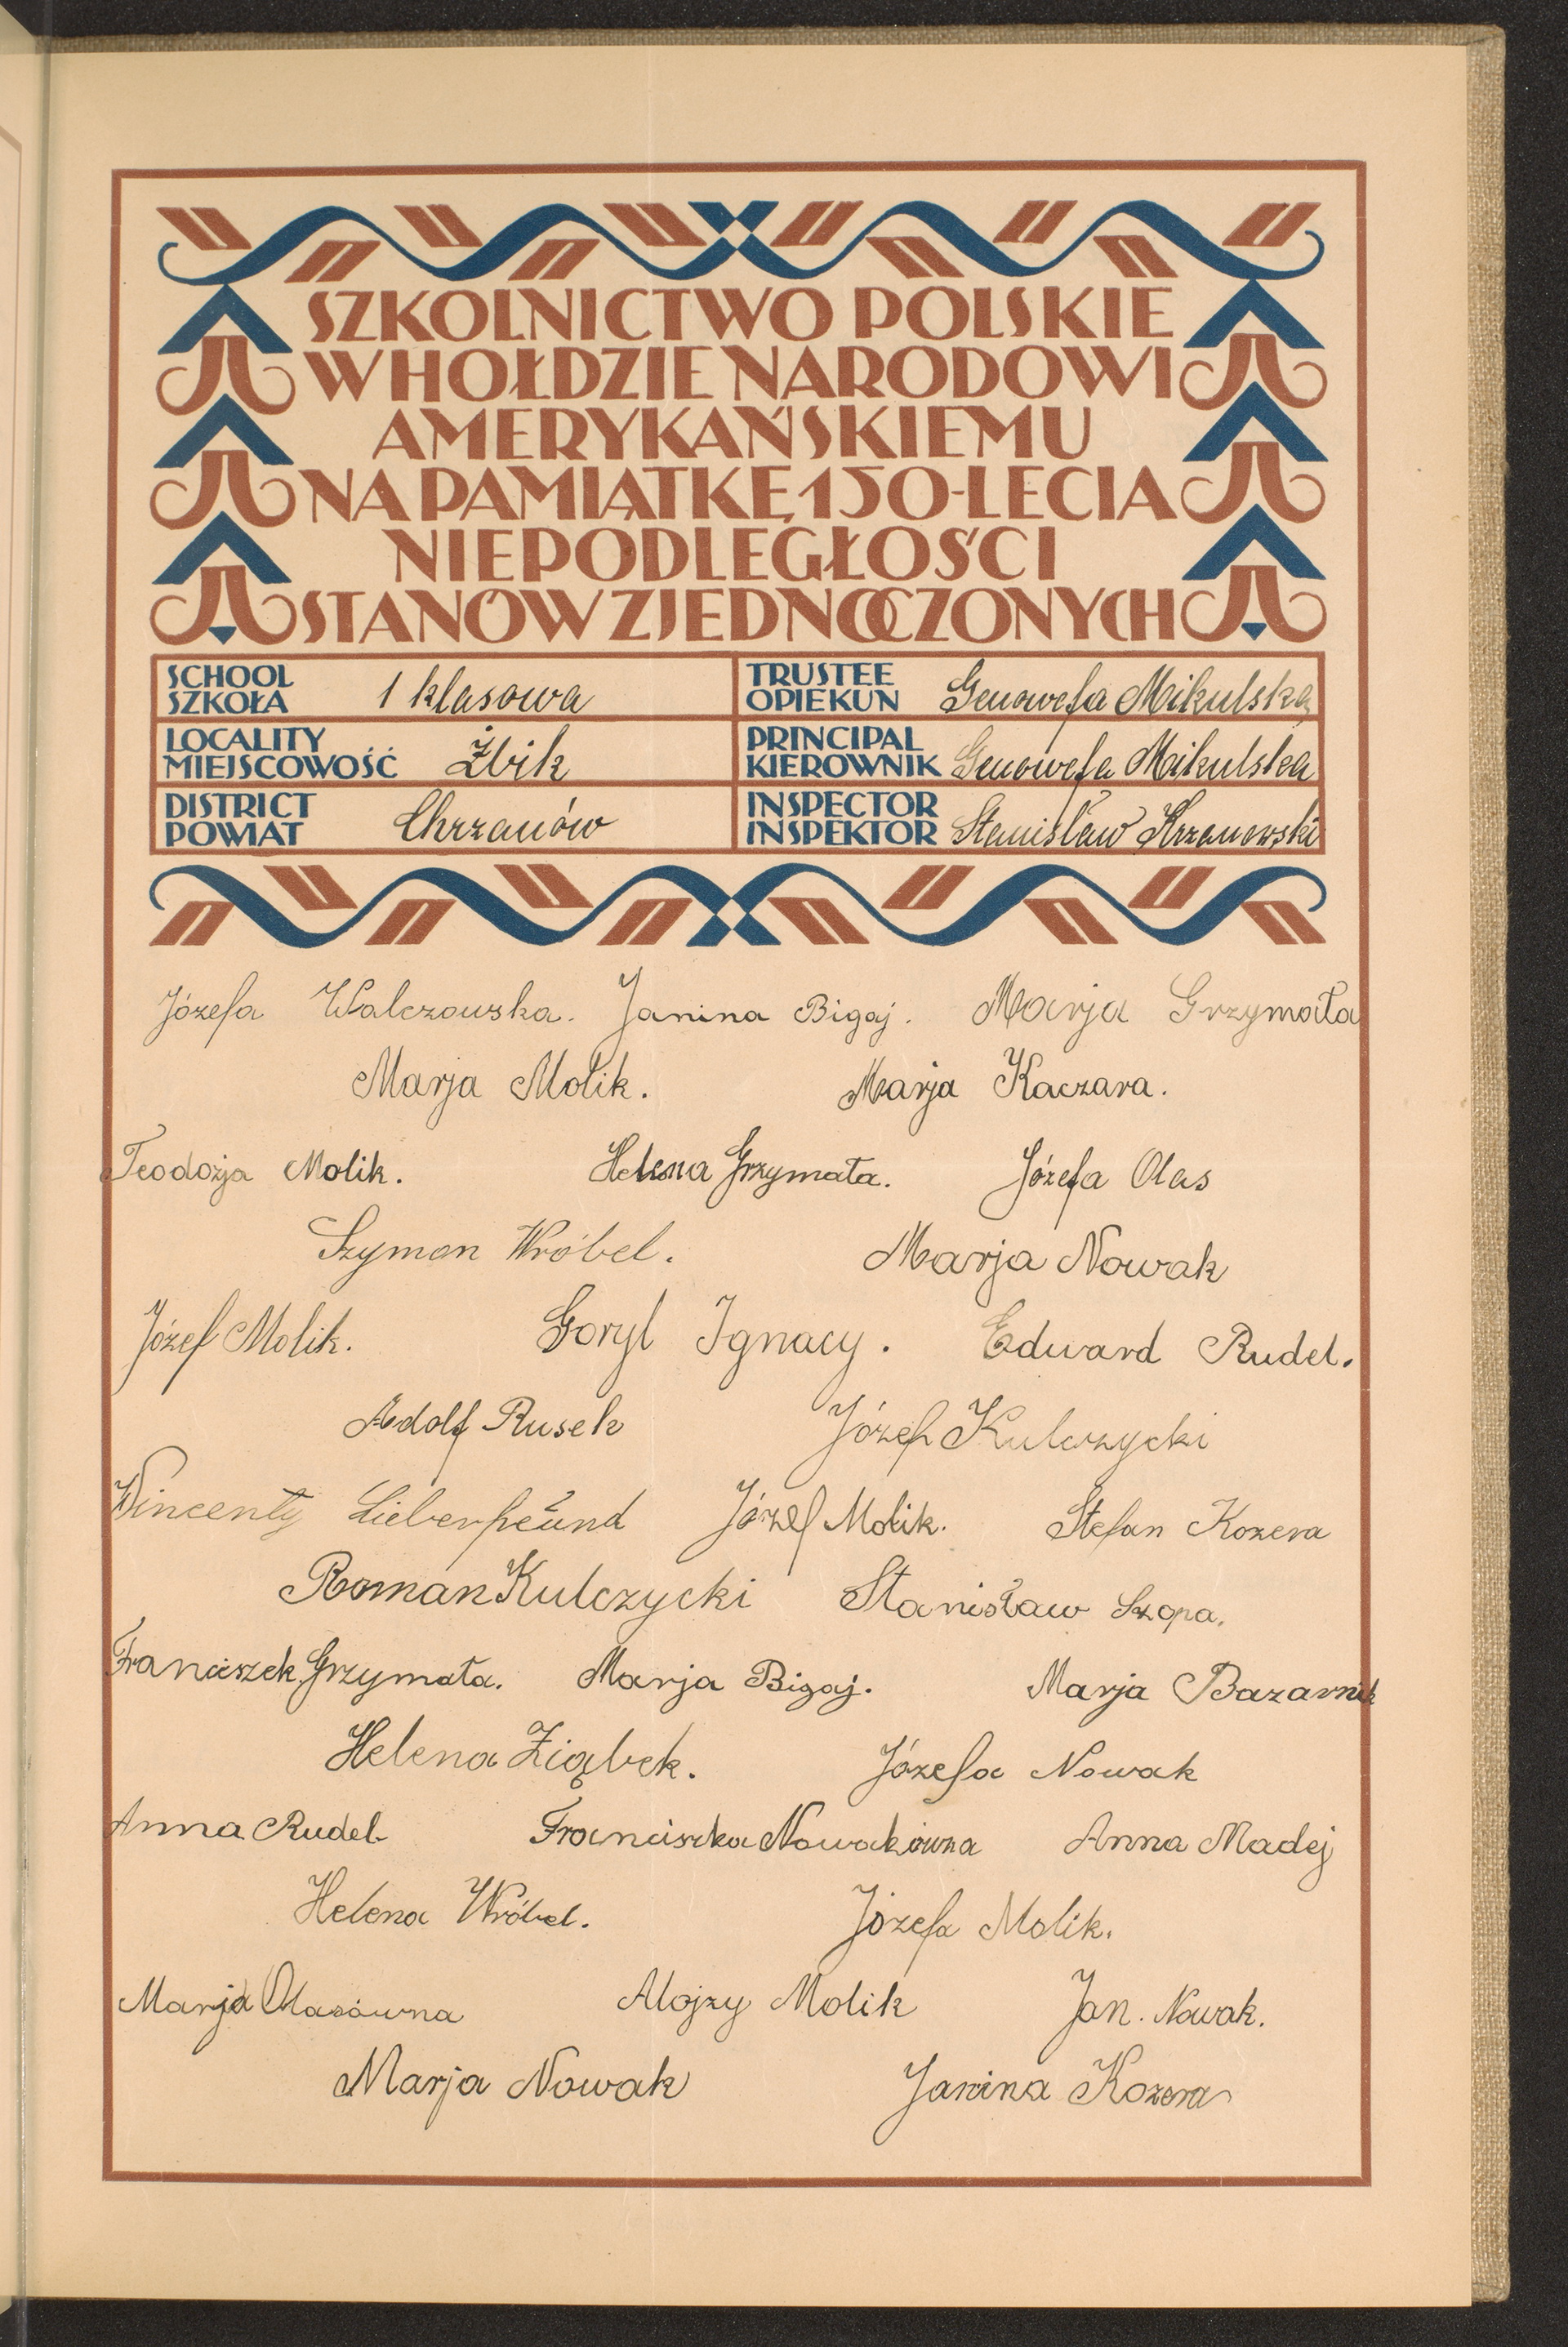 SZKOLNICTWO POLSKIE
W HOŁDZIE NARODOWI
AMERYKAŃSKIEMU
NA PAMIĄTKĘ 150-LECIA
NIEPODLEGŁOŚCI
STANÓW ZJEDNOCZONYCH
SCHOOL
SZKOŁA 1 klasowa
TRUSTEE
OPIEKUN Genowefa Mikulska
LOCALITY
MIEJSCOWOŚĆ Żbik
PRINCIPAL
KIEROWNIK Genowefa Mikulska
DISTRICT
POWIAT Chrzanów
INSPECTOR
INSPEKTOR Stanisław Krzanowski
Józefa Walczowska. Janina Bigaj. Marja Grzymała
Marja Molik. Marja Kaczara.
Teodozja Molik. Helena Grzymała. Józefa Olas
Szymon Wróbel. Marja Nowak
Józef Molik. Goryl Ignacy. Edward Rudel.
Adolf Rusek Józef Kulczycki
Wincenty Józef Molik. Stefan Kozera
Roman Kulczycki Stanisław Szopa.
Franciszek Grzymała. Marja Bigaj. Marja Bazarnik
Helena Ziąbek. Józefa Nowak
Anna Rudel Franciszka Nowakówna Anna Madej
Helena Wróbel. Józefa Molik.
Marja Olasówna Alojzy Molik Jan. Nowak.
Marja Nowak Janina Kozera